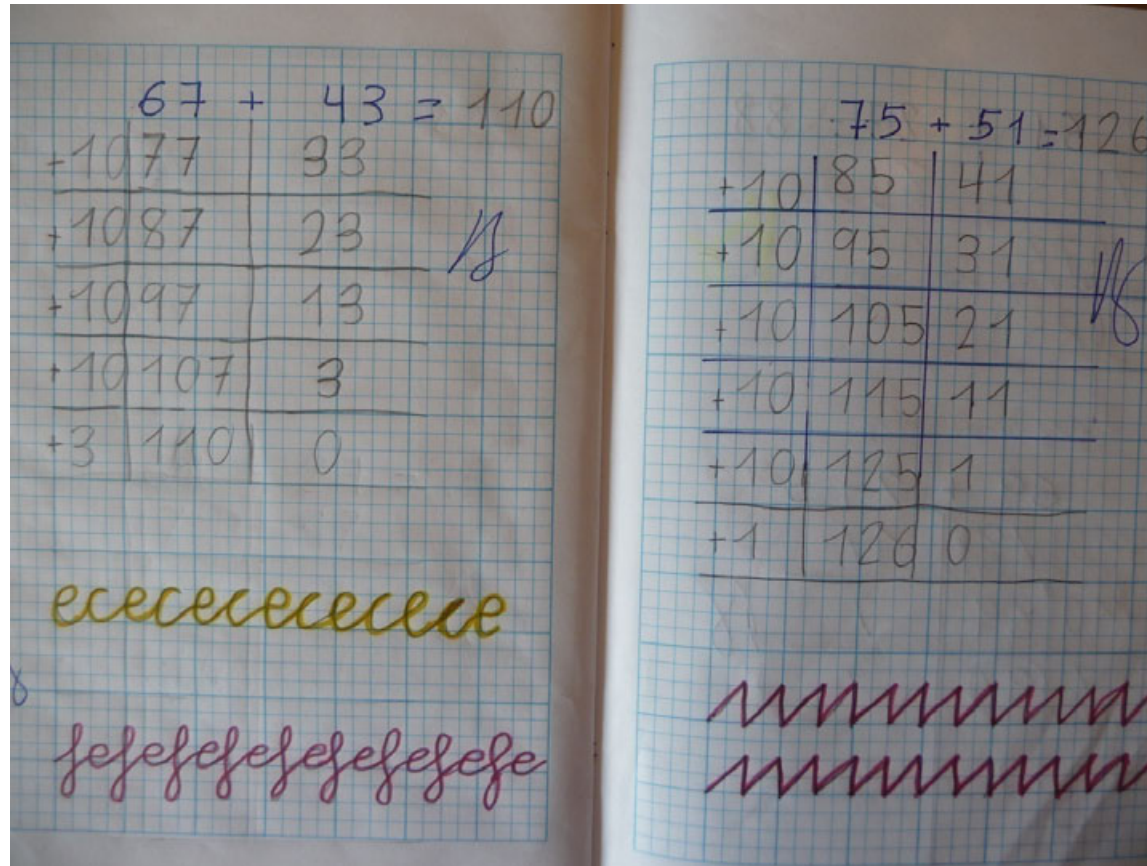 67 + 43 = 110
+10 77 33
+10 87 23
+10 97 13
+10 107 3
+3 110 0
ececececececece
fefefefefefefefe
75 + 51 = 126
+10 85 41
+10 95 31
+10 105 21
+10 115 11
+10 125 1
+1 126 0